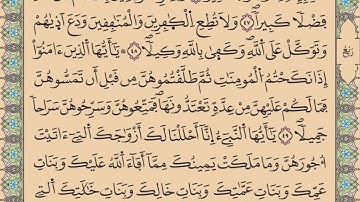 فَضْلًا كَبِيرًا ﴿٤٧﴾ وَلَا تُطِعِ الْكَٰفِرِينَ وَالْمُنَٰفِقِينَ وَدَعْ أَذَىٰهُمْ
وَتَوَكَّلْ عَلَى اللَّهِ وَكَفَىٰ بِاللَّهِ وَكِيلًا ﴿٤٨﴾ يَٰأَيُّهَا الَّذِينَ ءَامَنُوٓا۟
إِذَا نَكَحْتُمُ الْمُؤْمِنَٰتِ ثُمَّ طَلَّقْتُمُوهُنَّ مِن قَبْلِ أَن تَمَسُّوهُنَّ
فَمَا لَكُمْ عَلَيْهِنَّ مِنْ عِدَّةٍ تَعْتَدُّونَهَا فَمَتِّعُوهُنَّ وَسَرِّحُوهُنَّ سَرَاحًا
جَمِيلًا ﴿٤٩﴾ يَٰأَيُّهَا النَّبِىُّ إِنَّآ أَحْلَلْنَا لَكَ أَزْوَٰجَكَ الَّٰتِىٓ ءَاتَيْتَ
أُجُورَهُنَّ وَمَا مَلَكَتْ يَمِينُكَ مِمَّآ أَفَآءَ اللَّهُ عَلَيْكَ وَبَنَاتِ
عَمِّكَ وَبَنَاتِ عَمَّٰتِكَ وَبَنَاتِ خَالِكَ وَبَنَاتِ خَٰلَٰتِكَ الَّٰتِى